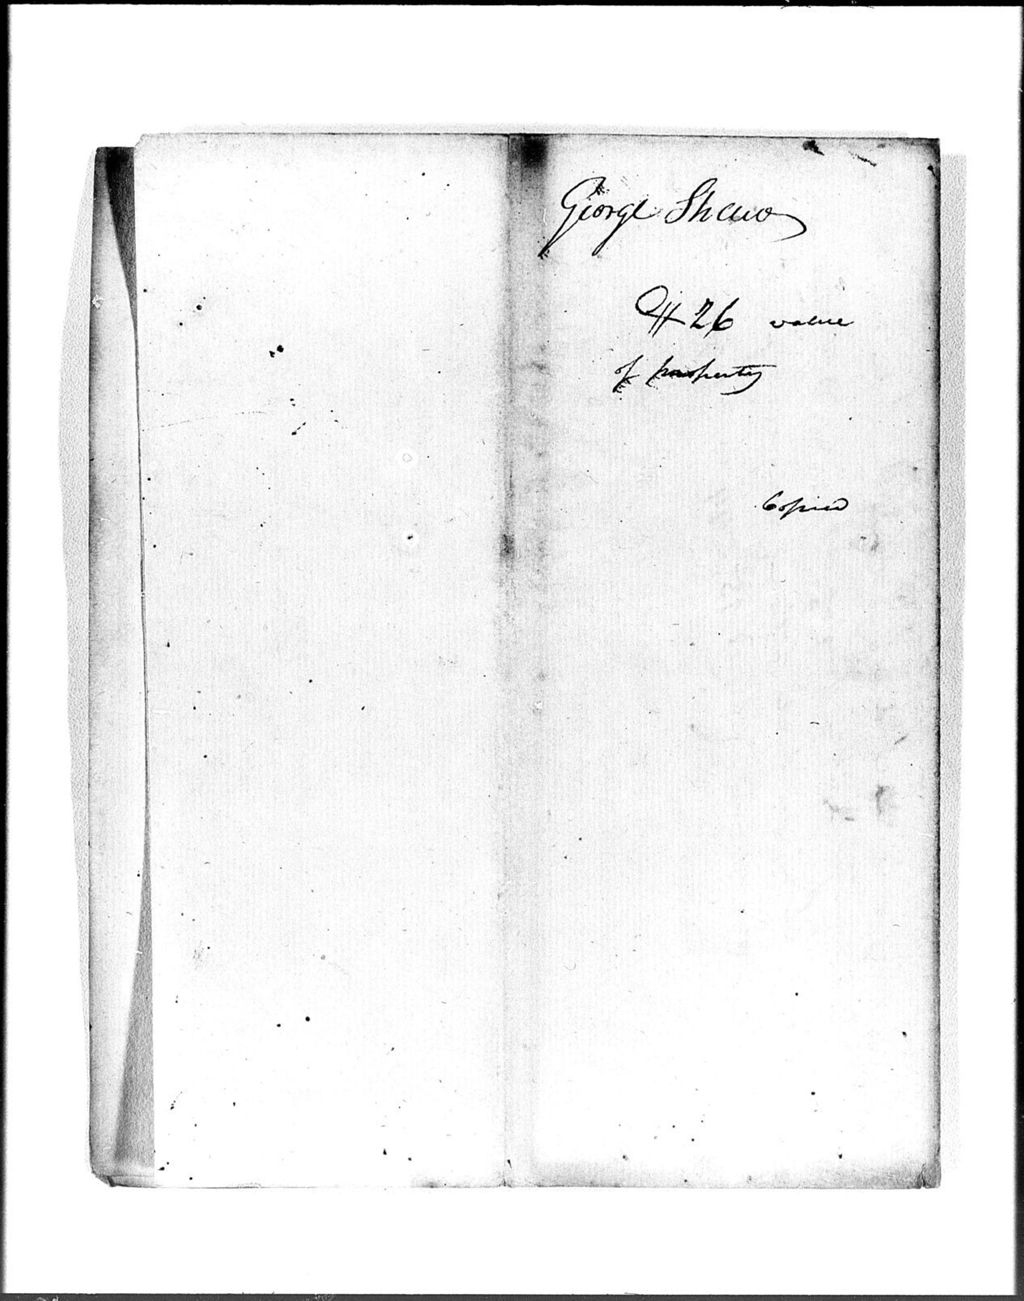 George Shaw
$26 value
of property
Copied